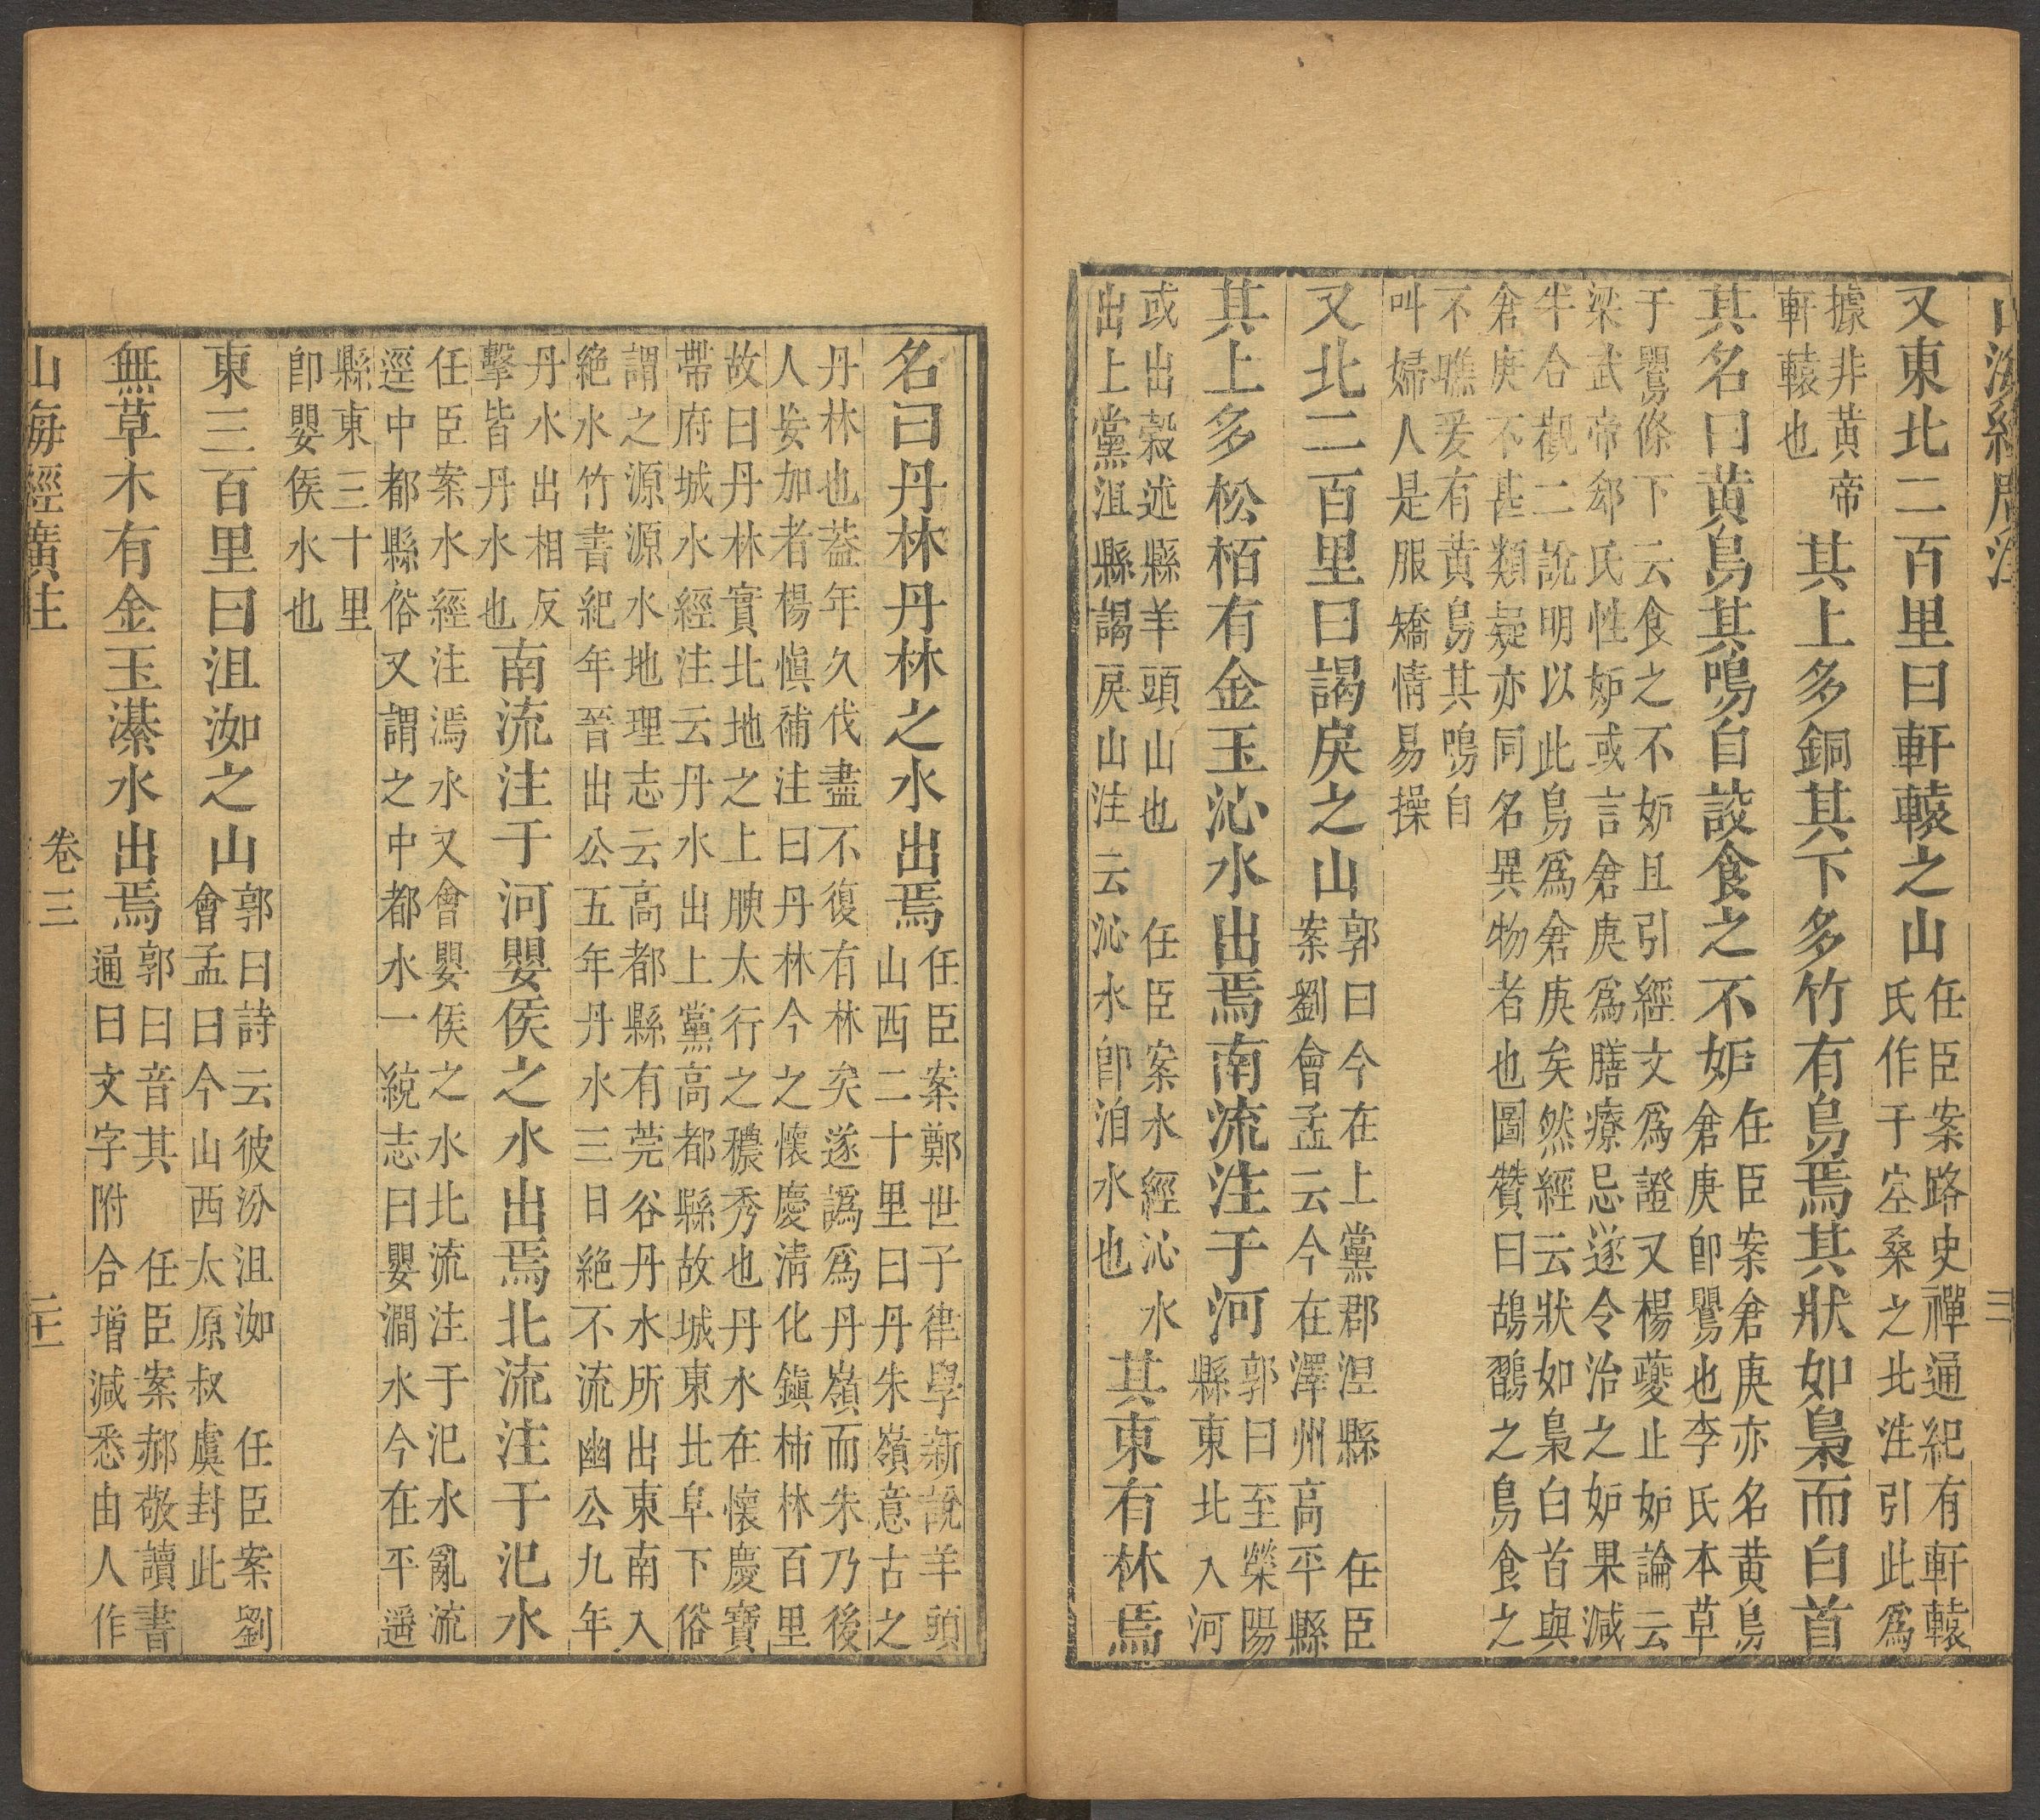 山海經廣注 三
又東北二百里曰軒轅之山
任臣案路史禪通紀有軒轅
氏作于空桑之北注引此爲
據非黄帝
軒轅也
其上多銅其下多竹有鳥焉其狀如梟而白首
其名曰黄鳥其鳴自詨食之不妬
任臣案倉庚亦名黄鳥
倉庚即鸎也李氏本草
于鸎條下云食之不妬且引經文爲證又楊夔止妬論云
梁武帝郄氏性妬或言倉庚爲膳療忌遂令治之妬果減
半合觀二說明以此鳥爲倉庚矣然經云狀如梟白首與
倉庚不甚類疑亦同名異物者也圖贊曰鴣鸐之鳥食之
不瞧爰有黄鳥其鳴自
叫婦人是服矯情易操
又北二百里曰謁戾之山
郭曰今在上黨郡涅縣 任臣
案劉會孟云今在澤州高平縣
其上多松栢有金玉沁水出焉南流注于河
郭曰至滎陽
縣東北入河
或出穀述縣羊頭山也 任臣案水經沁水
出上黨沮縣謁戾山注云沁水即洎水也
其東有林焉
名曰丹林丹林之水出焉
任臣案鄭世子律學新說羊頭
山西二十里曰丹朱嶺意古之
丹林也葢年久伐盡不復有林矣遂譌爲丹嶺而朱乃後
人妄加者楊愼補注曰丹林今之懷慶淸化鎭柿林百里
故曰丹林實北地之上腴太行之穠秀也丹水在懷慶寶
帶府城水經注云丹水出上黨高都縣故城東北阜下俗
謂之源源水地理志云高都縣有莞谷丹水所出東南入
絶水竹書紀年晉出公五年丹水三日絶不流幽公九年
丹水出相反
擊皆丹水也
南流注于河嬰侯之水出焉北流注于汜水
任臣案水經注潙水又會嬰侯之水北流注于汜水亂流
逕中都縣俗又謂之中都水一統志曰嬰澗水今在平遥
縣東三十里
即嬰侯水也
東三百里曰沮洳之山
郭曰詩云彼汾沮洳 任臣案劉
會孟曰今山西太原叔虞封此
無草木有金玉濝水出焉
郭曰音其 任臣案郝敬讀書
通曰文字附合增減悉由人作
山海經廣注 卷三